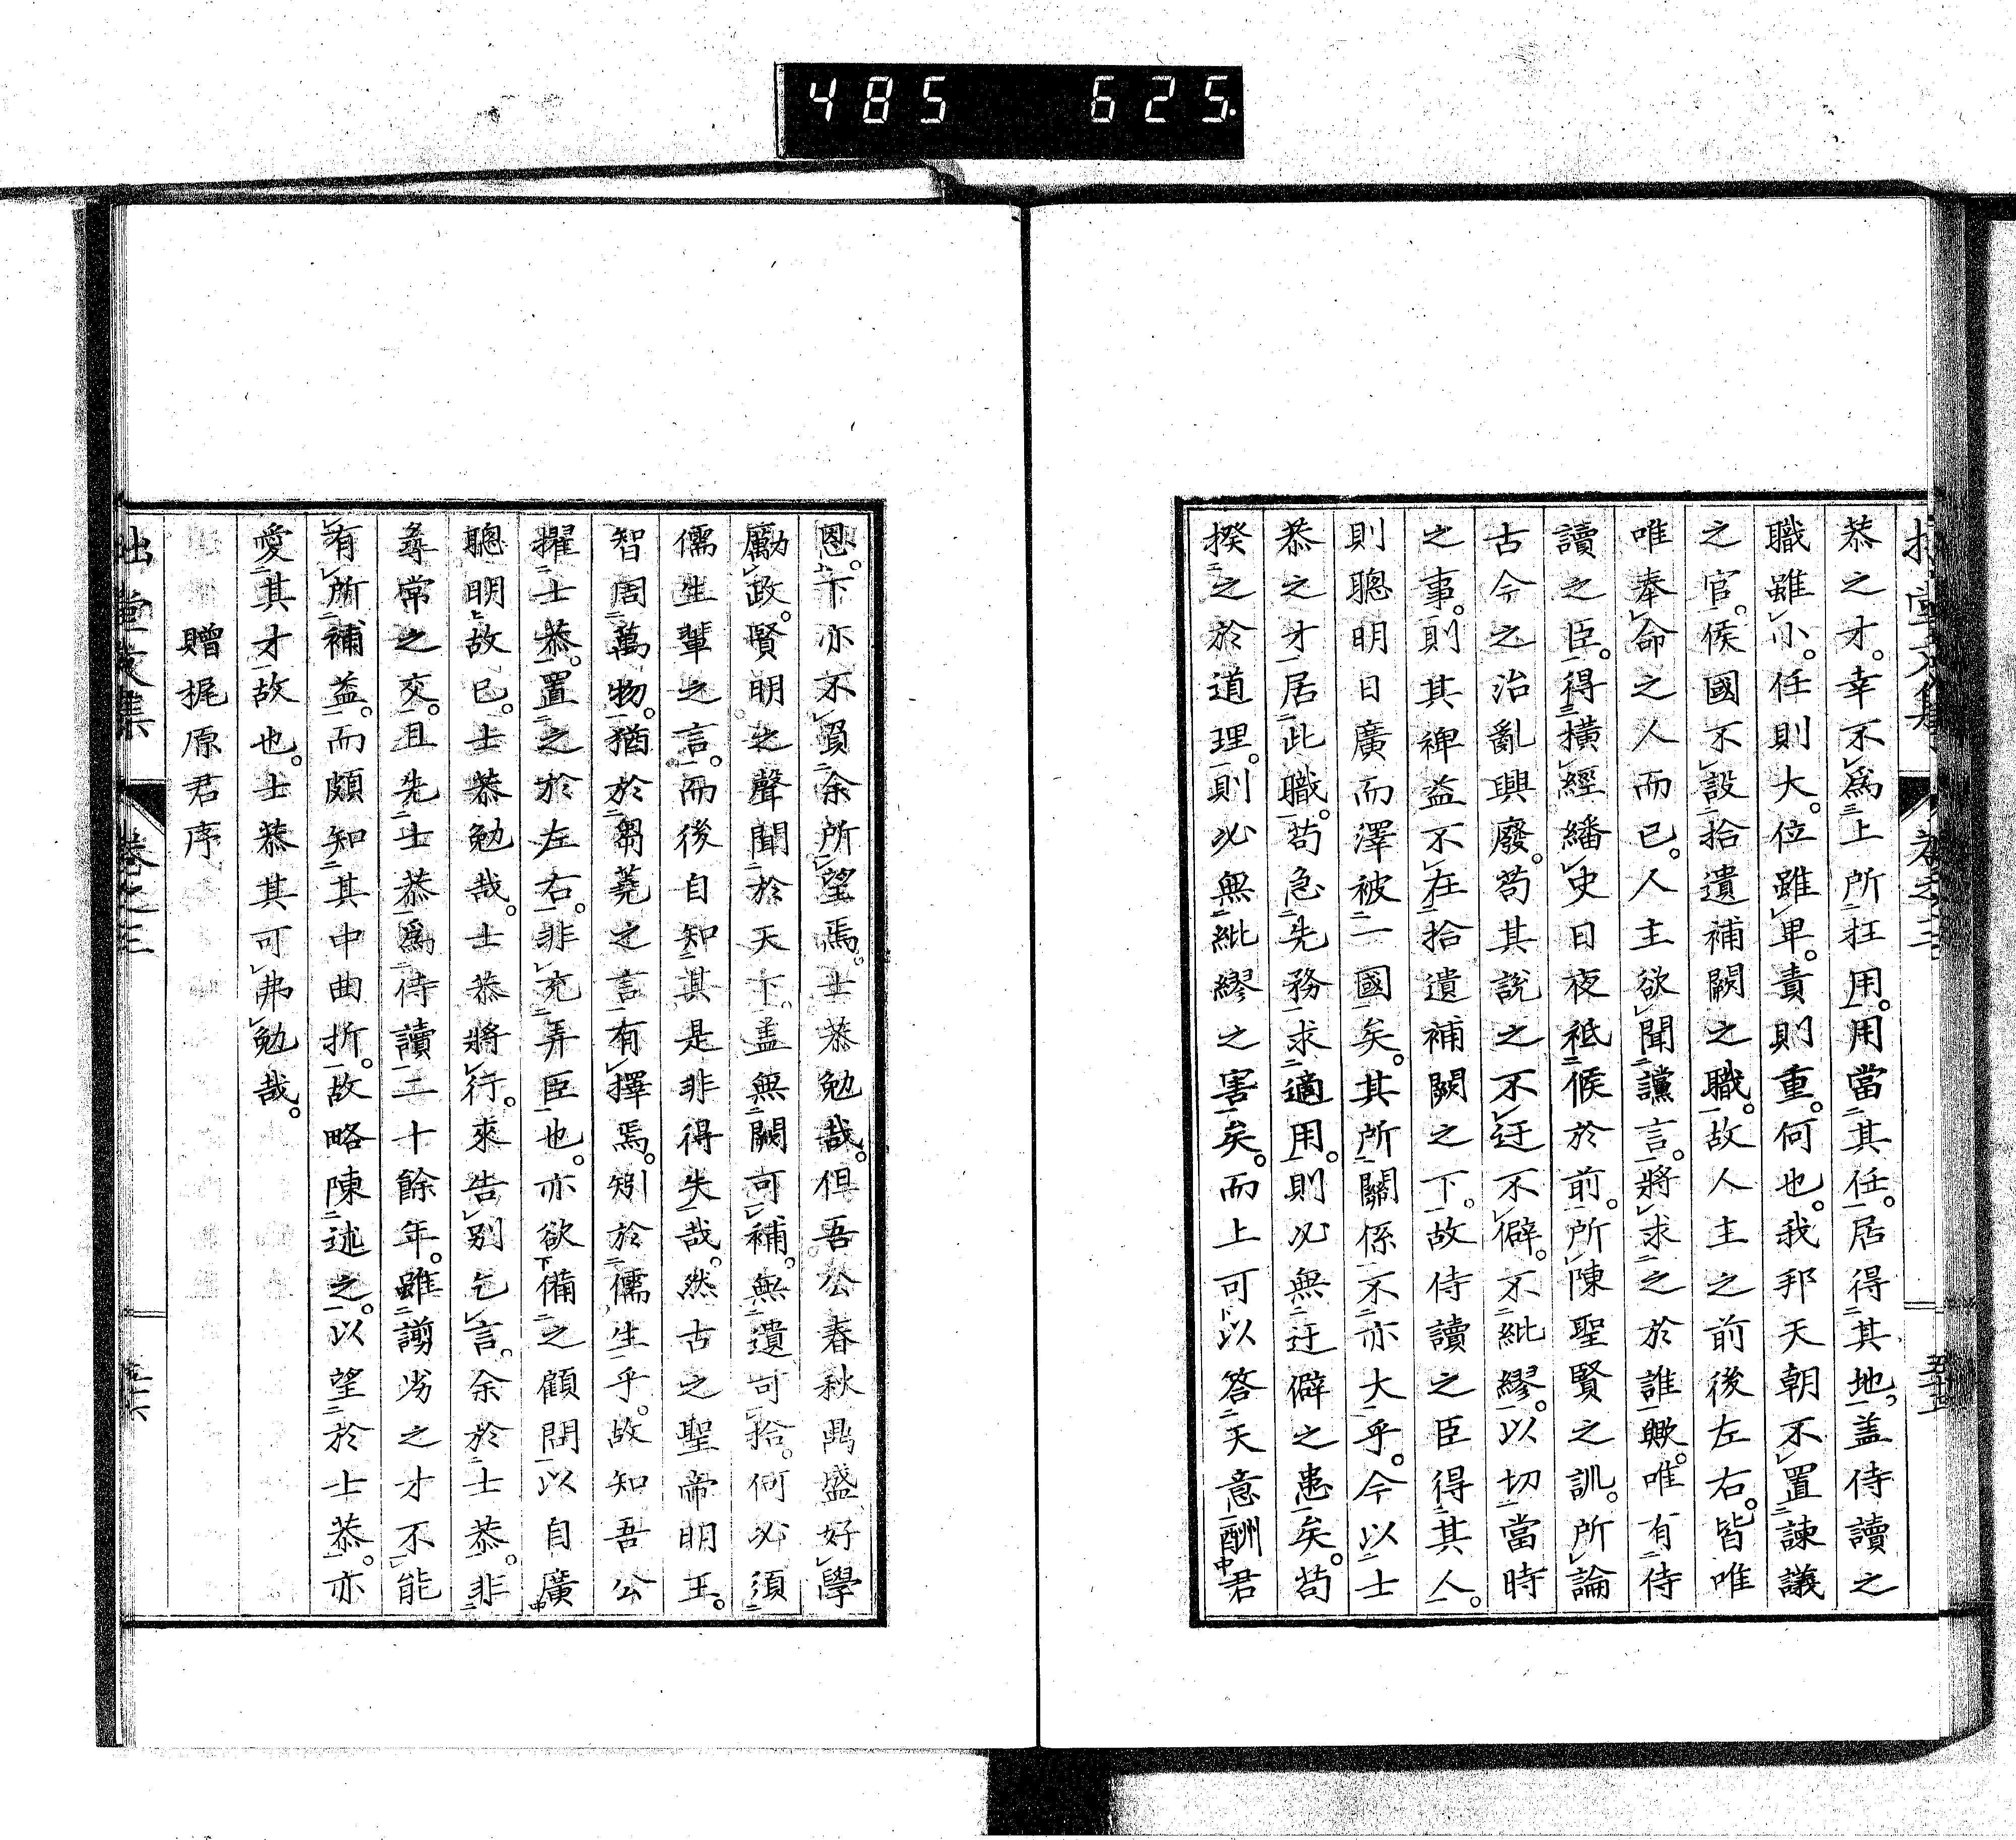 485 625.
恭之才。幸不爲上所抂用。用當其任。居得其地。盖侍讀之
職雖小。任則大。位雖卑。責則重。何也。我邦天朝不置諫議
之官。侯國不設拾遺補闕之職。故人主之前後左右。皆唯
唯奉命之人而已。人主欲聞讜言。將求之於誰歟。唯有侍
讀之臣。得橫經繙史日夜祗候於前。所陳聖賢之訓。所論
古今之治亂興廢。苟其說之不迂不僻。不紕繆。以切當時
之事。則其裨益不在拾遺補闕之下。故侍讀之臣得其人。
則聰明日廣而澤被一國矣。其所關係不亦大乎。今以士
恭之才居此職。苟急先務求適用。則必無迂僻之患矣。苟
揆之於道理。則必無紕繆之害矣。而上可以答天意酬君
恩。下亦不負余所望焉。士恭勉哉。但吾公春秋鼎盛好學
勵政。賢明之聲聞於天下。盖無闕可補。無遺可拾。何必須
儒生輩之言。而後自知其是非得失哉。然古之聖帝明王。
智周萬物。猶於芻蕘之言有擇焉。矧於儒生乎。故知吾公
擢士恭。置之於左右。非充弄臣也。亦欲備之顧問以自廣
聰明故已。士恭勉哉。士恭將行。來告別乞言。余於士恭。非
尋常之交。且先士恭爲侍讀二十餘年。雖謭劣之才不能
有所補益。而頗知其中曲折。故略陳述之。以望於士恭。亦
愛其才故也。士恭其可弗勉哉。
贈梶原君序
拙堂文集 卷之三 五十六